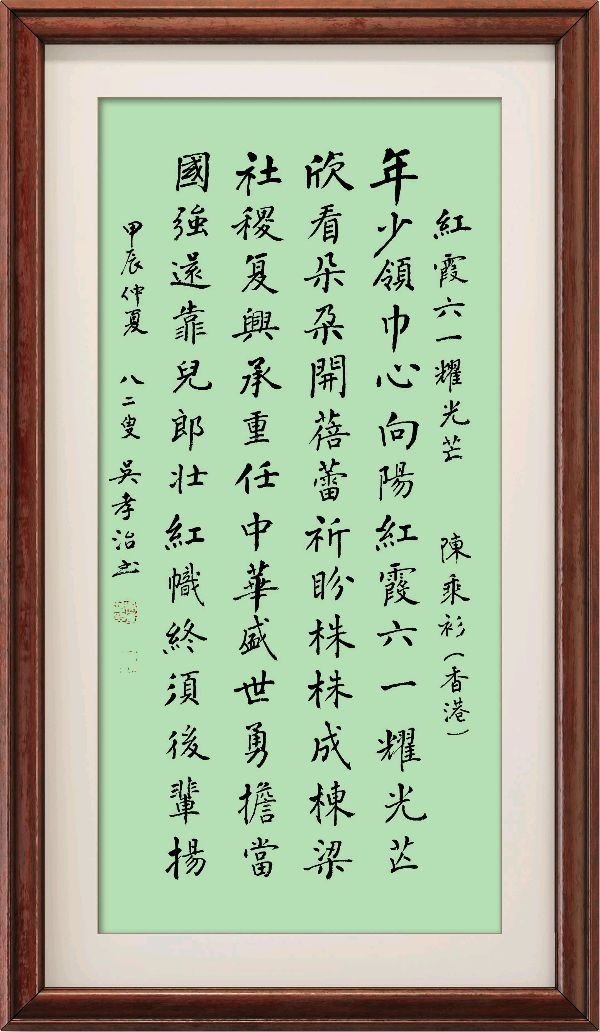 紅霞六一耀光芒　陳乘衫（香港）
年少領巾心向陽紅霞六一耀光芒
欣看朵朵開蓓蕾祈盼株株成棟梁
社稷复興承重任中華盛世勇擔當
國強還靠兒郎壯紅幟終須後輩揚
甲辰仲夏　八二叟　吴孝治书